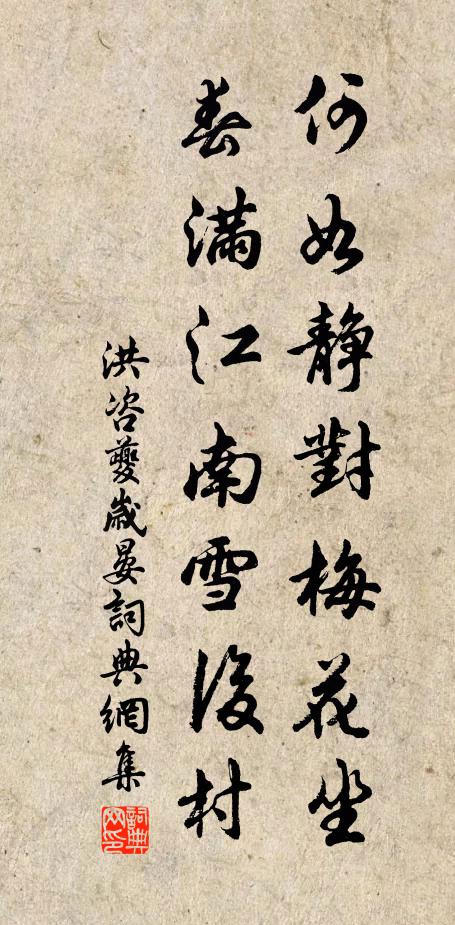 何如静對梅花坐
春滿江南雪後村
洪咨夔歲晏詞典網集
詞典網印